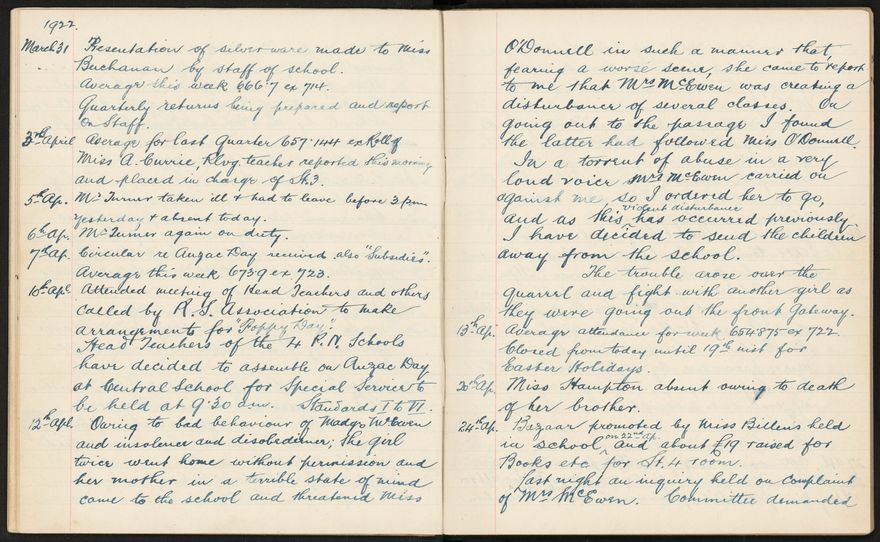 1922.
March 31 Presentation of silverware made to Miss
Buchanan by staff of school.
Average this week 666.7 ex 714.
Quarterly returns being prepared and report
on Staff.
3rd April Average for last Quarter 657.144 ex Roll of
Miss A. Currie, Rlvg teacher reported this morning
and placed in charge of St. 3.
5th Ap. Mr Turner taken ill & had to leave before 3 p.m.
yesterday & absent today.
6th Ap. Mr Turner again on duty.
7th Ap. Circular re Anzac Day received also "Subsidies".
Average this week 673.9 ex 723.
10th Apl. Attended meeting of Head Teachers and others
called by R.S. Association to make
arrangements for "Poppy Day".
Head Teachers of the 4 P.N. Schools
have decided to assemble on Anzac Day
at Central School for Special Service to
be held at 9.30 a.m. Standards I to VI.
12th Apl. Owing to bad behaviour of Madge McEwen
and insolence and disobedience; the girl
twice went home without permission and
her mother in a terrible state of mind
came to the school and threatened Miss
O'Donnell in such a manner that,
fearing a worse scene, she came to report
to me that Mrs McEwen was creating a
disturbance of several classes. On
going out to the passage I found
the latter had followed Miss O'Donnell.
In a torrent of abuse in a very
loud voice Mrs McEwen carried on
against me, so I ordered her to go,
violent disturbance
and as this has occurred previously
I have decided to send the children
away from the school.
The trouble arose over the
quarrel and fight with another girl as
they were going out the front gateway.
13th Ap. Average attendance for week 654.875 ex 722.
Closed from today until 19th inst for
Easter Holidays.
20th Ap. Miss Hampton absent owing to death
of her brother.
24th Ap. Bazaar promoted by Miss Billens held
on 22nd Ap.
in school, and about £19 raised for
Books etc for St. 4 room.
Last night an inquiry held on complaint
of Mrs McEwen. Committee demanded